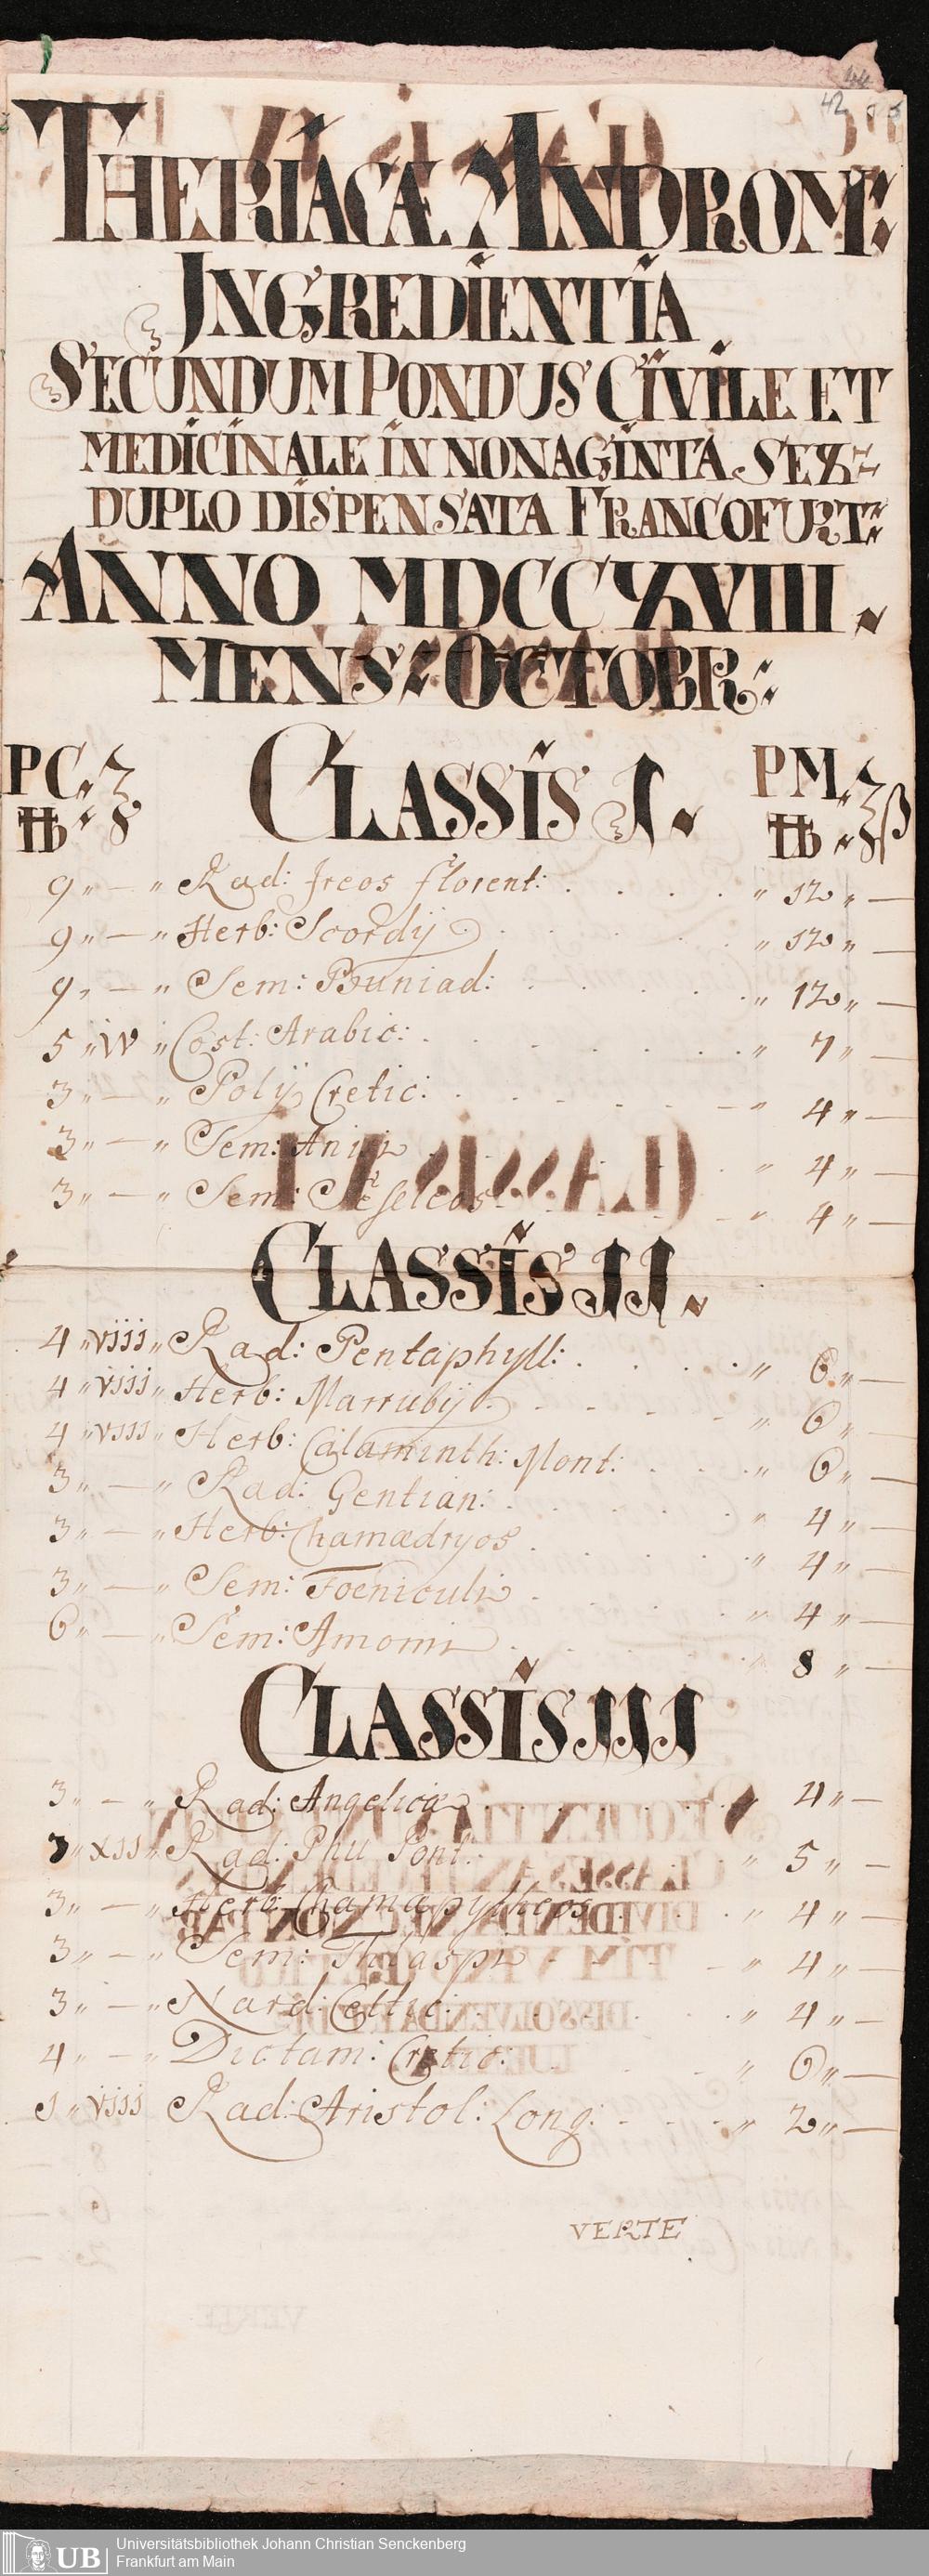 42
THERIACÆ ANDROM:
INGREDIENTIA
SECUNDUM PONDUS CIVILE ET
MEDICINALE IN NONAGINTA SEX-
DUPLO DISPENSATA FRANCOFURT:
ANNO MDCCXVIII.
MENS: OCTOBR:
PC. ℥ CLASSIS I. PM. ℥ß
℔ ℔
9 〃 — 〃 Rad: Jreos florent: . . . . 〃 12 〃 —
9 〃 — 〃 Herb: Scordij . . . . 〃 12 〃 —
9 〃 — 〃 Sem: Buniad: . . . . 〃 12 〃 —
5 〃 iv 〃 Cost: Arabic: . . . . 〃 7 〃 —
3 〃 — 〃 Polij Cretic: . . . . 〃 4 〃 —
3 〃 — 〃 Sem: Anisi . . . . 〃 4 〃 —
3 〃 — 〃 Sem: Seseleos . . . . 〃 4 〃 —
CLASSIS II.
4 〃 viij 〃 Rad: Pentaphyll: . . . . 〃 6 〃 —
4 〃 viij 〃 Herb: Marrubij . . . . 〃 6 〃 —
4 〃 viij 〃 Herb: Calaminth: Mont: . . . 〃 6 〃 —
3 〃 — 〃 Rad: Gentian: . . . . 〃 4 〃 —
3 〃 — 〃 Herb: Chamædryos . . . . 〃 4 〃 —
3 〃 — 〃 Sem: Foeniculi . . . . 〃 4 〃 —
6 〃 — 〃 Sem: Amomi . . . . 〃 8 〃 —
CLASSIS III
3 〃 — 〃 Rad: Angelicæ . . . . 〃 4 〃 —
3 〃 xij 〃 Rad: Phu Pont: . . . . 〃 5 〃 —
3 〃 — 〃 Herb: Chamæpytheos . . . 〃 4 〃 —
3 〃 — 〃 Sem: Thlaspi . . . . 〃 4 〃 —
3 〃 — 〃 Nard: Celtic: . . . . 〃 4 〃 —
4 〃 — 〃 Dictam: Cretic: . . . . 〃 6 〃 —
1 〃 viij Rad: Aristol: Long: . . . 〃 2 〃 —
VERTE
UB Universitätsbibliothek Johann Christian Senckenberg
Frankfurt am Main